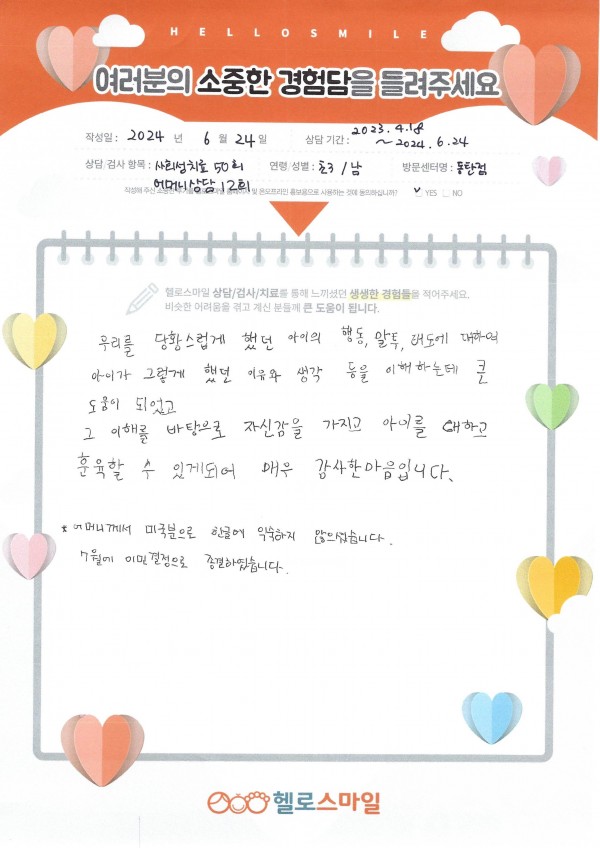 HELLOSMILE
여러분의 소중한 경험담을 들려주세요
작성일 : 2024 년 6 월 24 일 상담 기간 : 2023.4.18 ~ 2024.6.24
상담/검사 항목 : 사회성치료 50회 어머니상담 12회 연령/성별 : 초3 / 남 방문센터명 : 동탄점
작성해 주신 소중한 및 온오프라인 홍보용으로 사용하는 것에 동의하십니까? ✓ YES □ NO
헬로스마일 상담/검사/치료를 통해 느끼셨던 생생한 경험들을 적어주세요.
비슷한 어려움을 겪고 계신 분들께 큰 도움이 됩니다.
우리를 당황스럽게 했던 아이의 행동, 말투, 태도에 대하여
아이가 그렇게 했던 이유와 생각 등을 이해하는데 큰
도움이 되었고
그 이해를 바탕으로 자신감을 가지고 아이를 대하고
훈육할 수 있게되어 매우 감사한마음입니다.
* 어머니께서 미국분으로 한글에 익숙하지 않으셨습니다.
7월에 이민결정으로 종결하였습니다.
헬로스마일